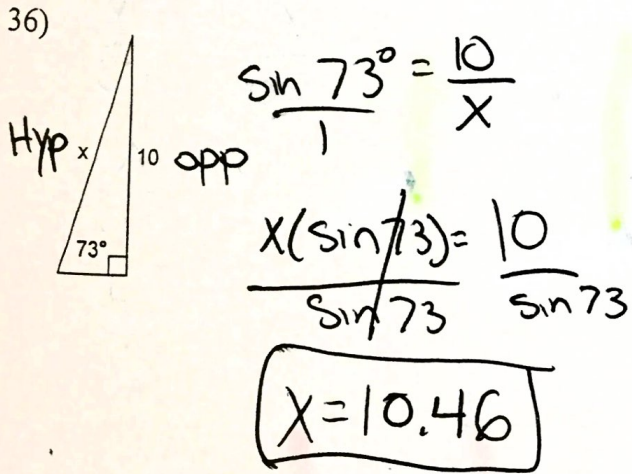 36)
Hyp x 10 opp
73°
sin 73° = 10
1 x
x(sin73) = 10
sin 73 sin 73
x = 10.46